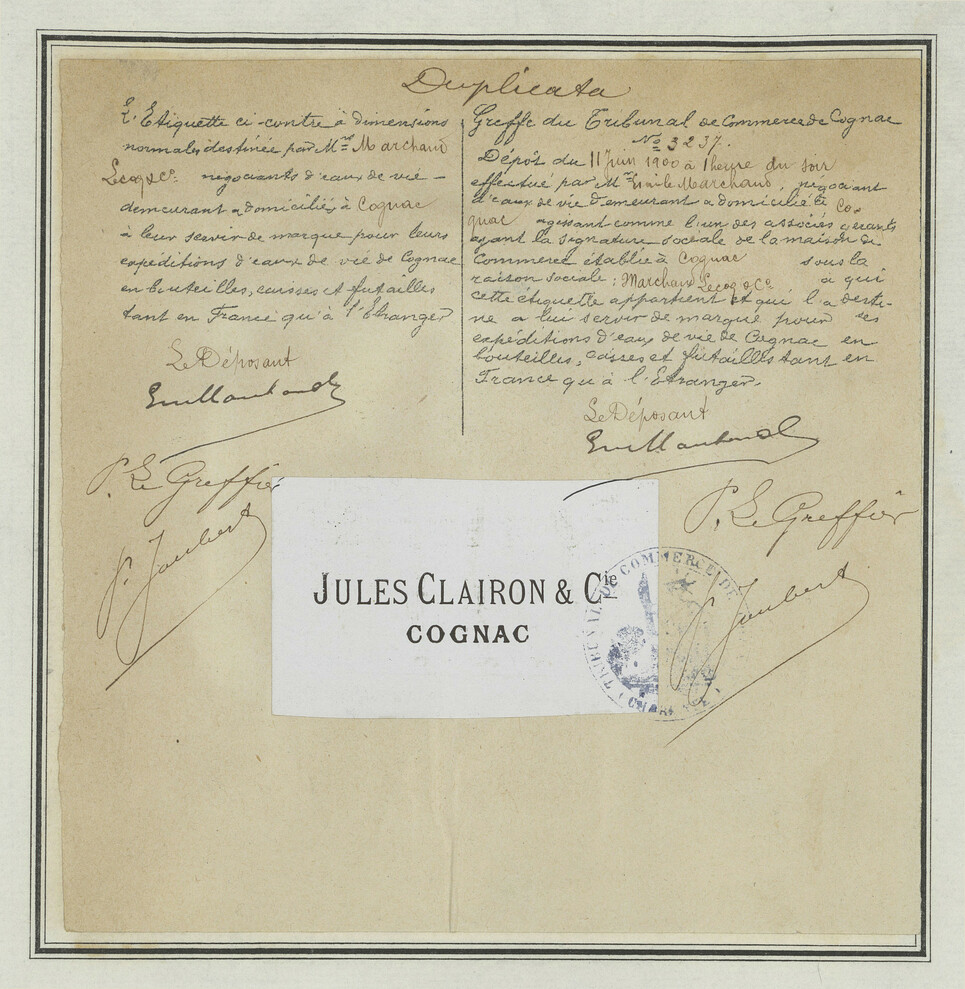 Duplicata
L'Etiquette ci-contre à dimensions
normales destinée par Mrs Marchand
Lecoq & Cie negociants d'eaux de vie -
demeurant & domiciliés à Cognac
à leur servir de marque pour leurs
expéditions d'eaux de vie de Cognac
en bouteilles, caisses et futailles
tant en France qu'à l'Etranger
Le Déposant
P. Le Greffier
P. Joubert
Greffe du Tribunal de Commerce de Cognac
No 3237.
Dépôt du 11 Juin 1900 à 1 heure du soir
effectué par Mr Emile Marchand, negociant
d'eaux de vie demeurant & domicilié à Co-
gnac agissant comme l'un des associés gerants
ayant la signature sociale de la maison de
Commerce établie à Cognac sous la
raison sociale: Marchand Lecoq & Cie. à qui
cette étiquette appartient et qui l'a desti-
né a lui servir de marque pour ses
expéditions d'eaux de vie de Cognac en
bouteilles, caisses et futailles tant en
France qu'à l'Etranger.
Le Déposant
P. Le Greffier
P. Joubert
JULES CLAIRON & Cie
COGNAC
TRIBUNAL DE COMMERCE DE
(CHARENTE)